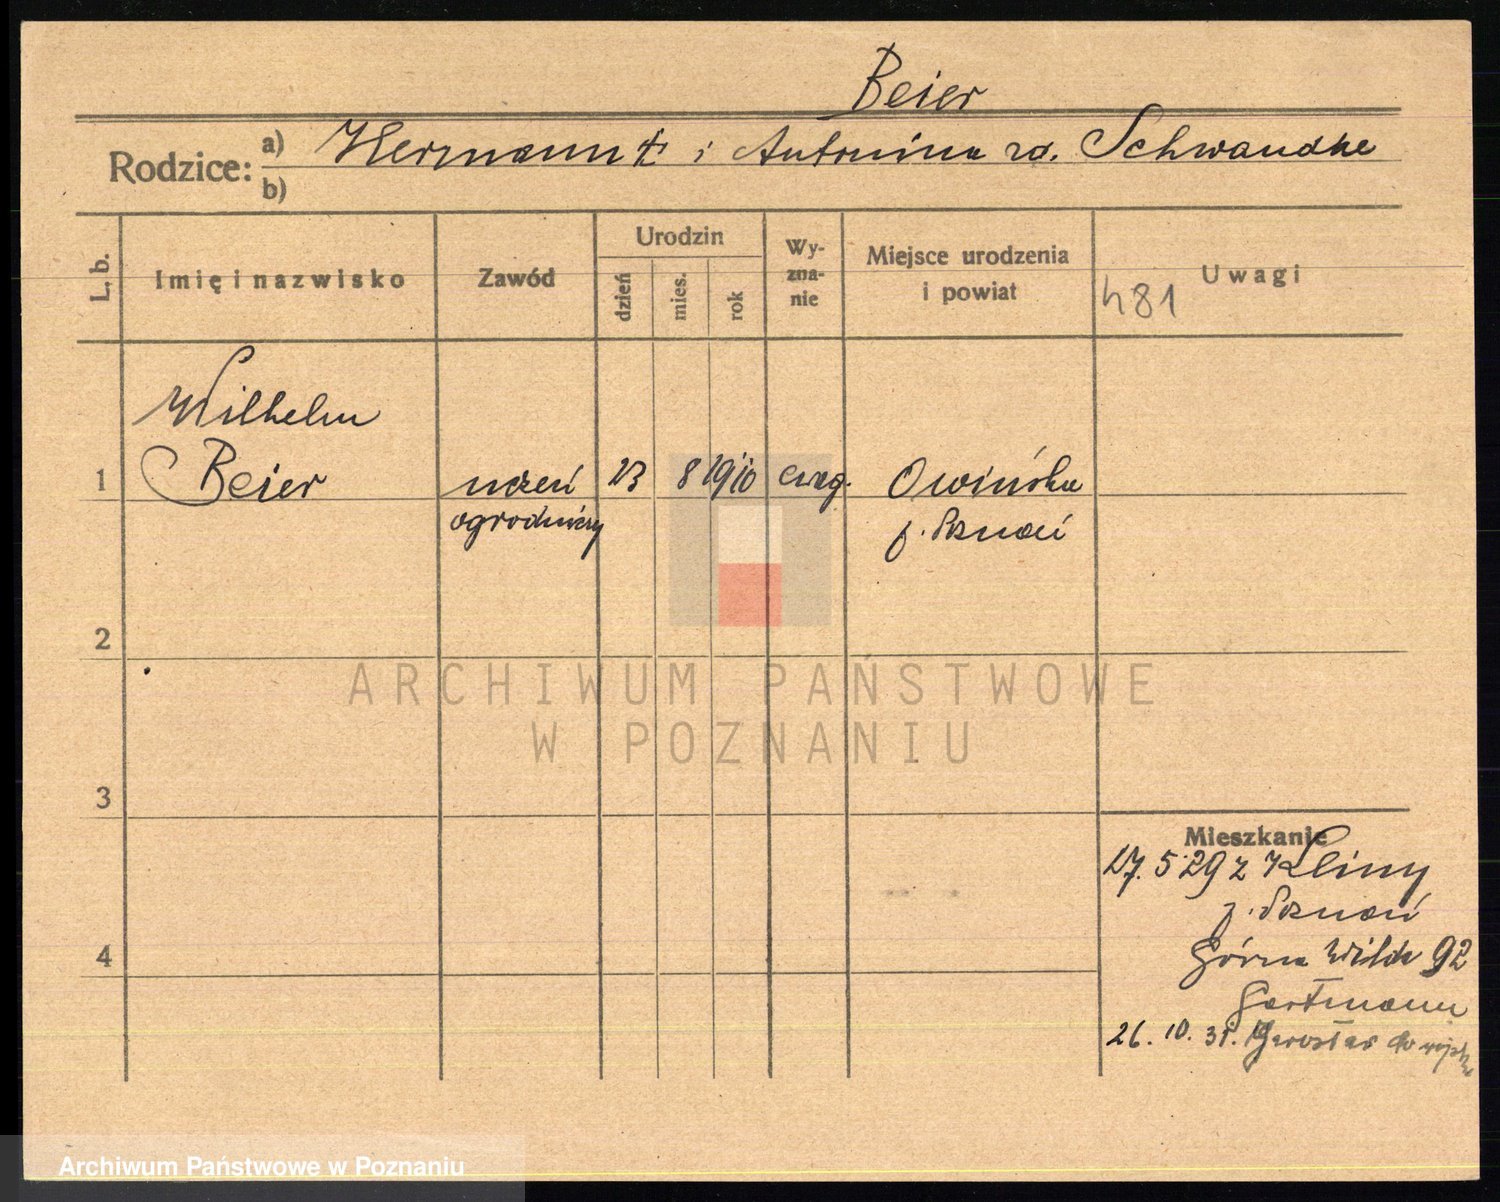 Beier
Rodzice: a) Hermann † i Antonina ro. Schwandke
b)
L. b.
Imię i nazwisko
Zawód
Urodzin
dzień
mies.
rok
Wy-
zna-
nie
Miejsce urodzenia
i powiat
Uwagi
481
Wilhelm
1 Beier uczeń 23 8 1910 ewag. Owińska
ogrodniczy p. Poznań
2
ARCHIWUM PAŃSTWOWE
W POZNANIU
3
Mieszkanie
17. 5 29 z Kliny
p. Poznań
4 Górna Wilda 92
Gartmann
26. 10. 31. Jarosław do wojska
Archiwum Państwowe w Poznaniu